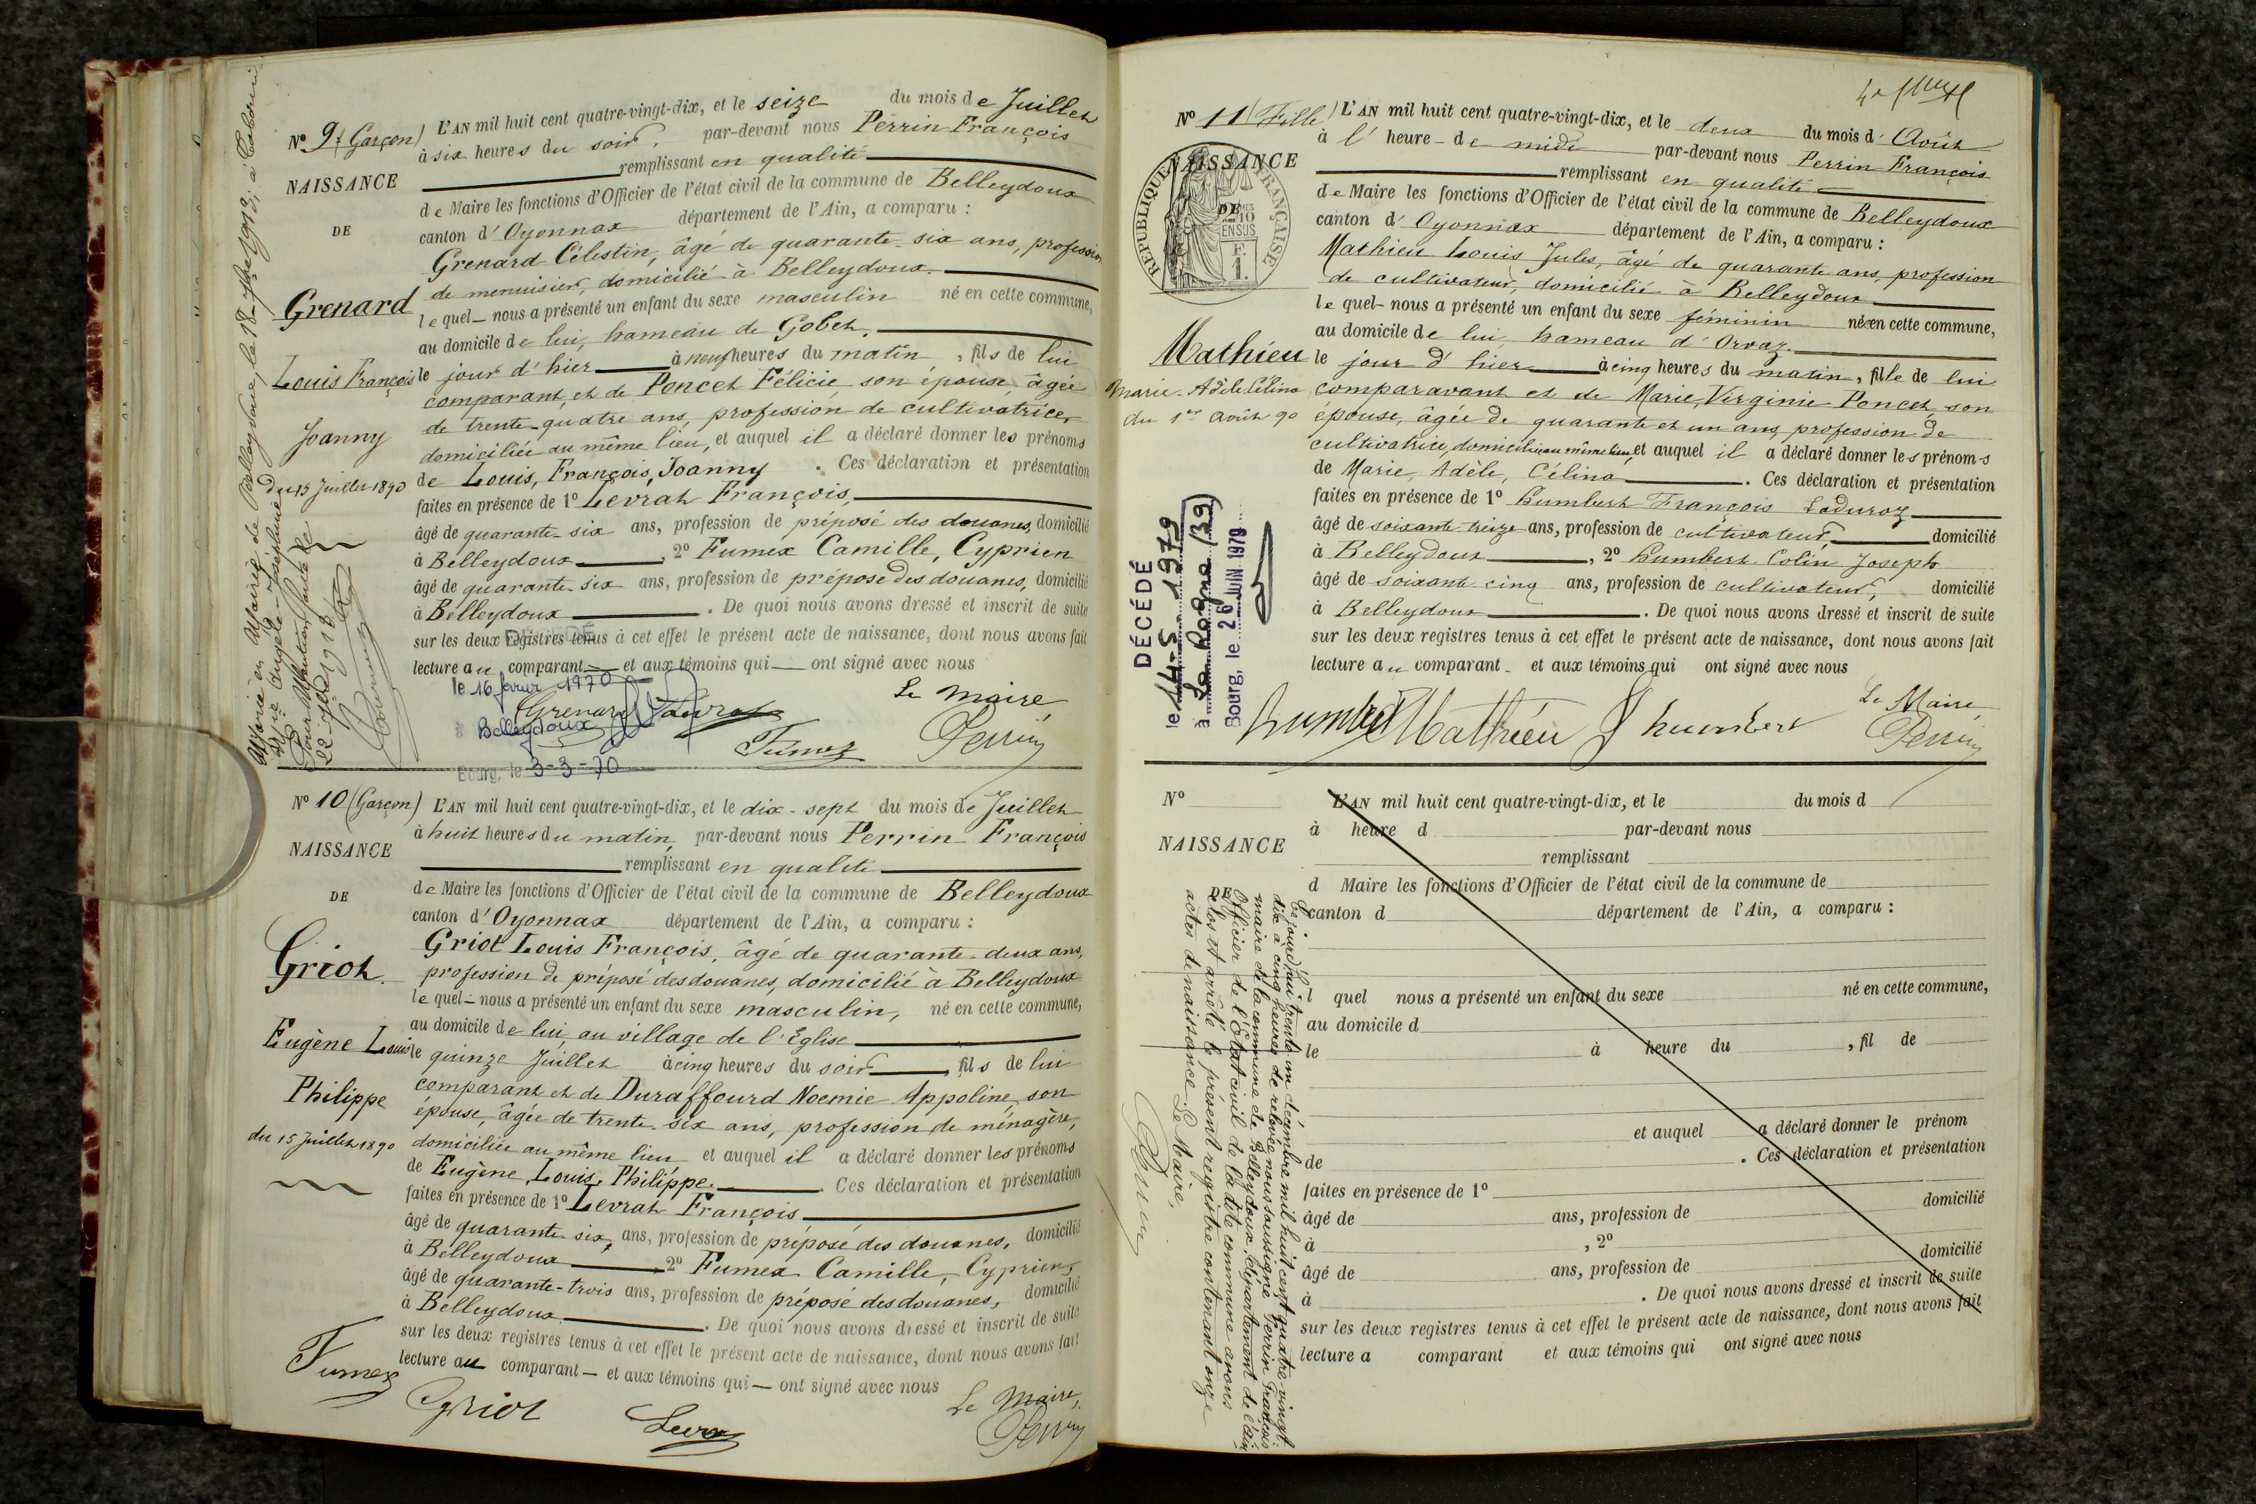 N° 9 (Garçon)
NAISSANCE
DE
Grenard
Louis François
Joanny
du 15 Juillet 1890
L'AN mil huit cent quatre-vingt-dix, et le seize du mois de Juillet
à six heures du soir, par-devant nous Perrin François
remplissant en qualité
de Maire les fonctions d'Officier de l'état civil de la commune de Belleydoux
canton d'Oyonnax département de l'Ain, a comparu :
Grenard Célestin, âgé de quarante-six ans, profession
de menuisier, domicilié à Belleydoux.
lequel nous a présenté un enfant du sexe masculin né en cette commune,
au domicile de lui, hameau de Gobet,
le jour d'hier à neuf heures du matin, fils de lui
comparant, et de Poncet Félicie, son épouse, âgée
de trente-quatre ans, profession de cultivatrice,
domiciliée au même lieu, et auquel il a déclaré donner les prénoms
de Louis, François, Joanny. Ces déclaration et présentation
faites en présence de 1° Levrat François,
âgé de quarante-six ans, profession de préposé des douanes, domicilié
à Belleydoux, 2° Fumex Camille, Cyprien
âgé de quarante-six ans, profession de préposé des douanes, domicilié
à Belleydoux. De quoi nous avons dressé et inscrit de suite
sur les deux registres tenus à cet effet le présent acte de naissance, dont nous avons fait
lecture au comparant et aux témoins qui ont signé avec nous
DÉCÉDÉ
le 16 février 1970
à Belleydoux
Bourg, le 3-3-70
Grenard Levrat
Fumex
Le Maire,
Perrin
Marié en Mairie de Belleydoux, le 18 7bre 1918, à
22 1918
N° 10 (Garçon)
NAISSANCE
DE
Griot
Eugène Louis
Philippe
du 15 Juillet 1890
L'AN mil huit cent quatre-vingt-dix, et le dix-sept du mois de Juillet
à huit heures du matin, par-devant nous Perrin François
remplissant en qualité
de Maire les fonctions d'Officier de l'état civil de la commune de Belleydoux
canton d'Oyonnax département de l'Ain, a comparu :
Griot Louis François, âgé de quarante-deux ans,
profession de préposé des douanes, domicilié à Belleydoux
lequel nous a présenté un enfant du sexe masculin, né en cette commune,
au domicile de lui, au village de l'Eglise
le quinze Juillet à cinq heures du soir, fils de lui
comparant et de Duraffourd Noemie Appoline, son
épouse, âgée de trente-six ans, profession de ménagère,
domiciliée au même lieu et auquel il a déclaré donner les prénoms
de Eugène, Louis, Philippe. Ces déclaration et présentation
faites en présence de 1° Levrat François,
âgé de quarante six, ans, profession de préposé des douanes, domicilié
à Belleydoux, 2° Fumex Camille, Cyprien,
âgé de quarante-trois ans, profession de préposé des douanes, domicilié
à Belleydoux. De quoi nous avons dressé et inscrit de suite
sur les deux registres tenus à cet effet le présent acte de naissance, dont nous avons fait
lecture au comparant et aux témoins qui ont signé avec nous
Fumex
Griot
Levrat
Le Maire,
Perrin
N° 11 (Fille)
NAISSANCE
DE
RÉPUBLIQUE FRANÇAISE
Mathieu
Marie-Adèle Célina
du 1er Août 90
L'AN mil huit cent quatre-vingt-dix, et le deux du mois d'Août
à l'heure de midi par-devant nous Perrin François
remplissant en qualité
de Maire les fonctions d'Officier de l'état civil de la commune de Belleydoux
canton d'Oyonnax département de l'Ain, a comparu :
Mathieu Louis Jules, âgé de quarante ans, profession
de cultivateur, domicilié à Belleydoux
lequel nous a présenté un enfant du sexe féminin née en cette commune,
au domicile de lui, hameau d'Orvaz.
le jour d'hier à cinq heures du matin, fille de lui
comparavant et de Marie, Virginie Poncet, son
épouse, âgée de quarante et un ans, profession de
cultivatrice, domiciliée au même lieu, et auquel il a déclaré donner les prénoms
de Marie, Adèle, Célina. Ces déclaration et présentation
faites en présence de 1° humbert François Laduroz
âgé de soixante-treize ans, profession de cultivateur, domicilié
à Belleydoux, 2° humbert Colin Joseph
âgé de soixant cinq ans, profession de cultivateur, domicilié
à Belleydoux. De quoi nous avons dressé et inscrit de suite
sur les deux registres tenus à cet effet le présent acte de naissance, dont nous avons fait
lecture au comparant et aux témoins qui ont signé avec nous
DÉCÉDÉ
le 14-5-1979
à La Rogne (39)
Bourg, le 26 JUIN 1979
humbert Mathieu J humbert
Le Maire,
Perrin
N°
NAISSANCE
DE
L'AN mil huit cent quatre-vingt-dix, et le du mois d
à heure d par-devant nous
remplissant
d Maire les fonctions d'Officier de l'état civil de la commune de
canton d département de l'Ain, a comparu :
quel nous a présenté un enfant du sexe né en cette commune,
au domicile d
le à heure du , fil de
et auquel a déclaré donner le prénom
de . Ces déclaration et présentation
faites en présence de 1°
âgé de ans, profession de domicilié
à , 2°
âgé de ans, profession de domicilié
à . De quoi nous avons dressé et inscrit de suite
sur les deux registres tenus à cet effet le présent acte de naissance, dont nous avons fait
lecture a comparant et aux témoins qui ont signé avec nous
Ce jourd'hui trente un décembre mil huit cent quatre-vingt-
dix à cinq heures de relevée nous soussigné Perrin François
maire de la commune de Belleydoux, département de l'Ain
Officier de l'Etat civil de la dite commune avons
clos et arrêté le présent registre contenant onze
actes de naissance. Le Maire,
Perrin